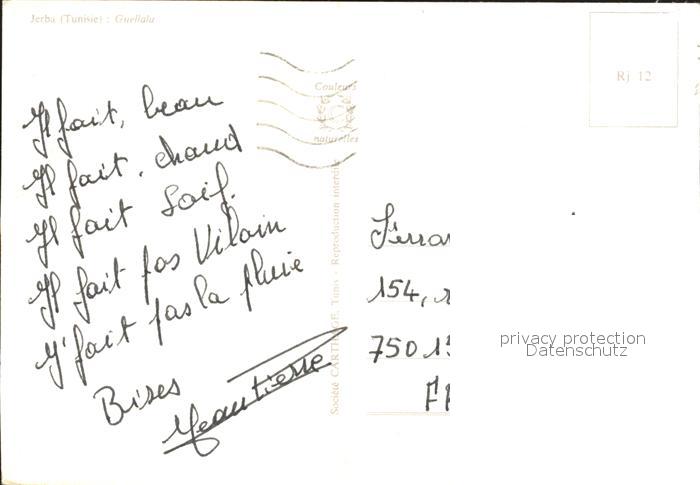 Jerba (Tunisie) : Guellala
Rj 12
Couleurs
naturelles
Société CARTHAGE, Tunis - Reproduction interdite
Il fait, beau
Il fait, chaud
Il fait Soif.
Il fait pas Vilain
Y'fait pas la pluie
Bises
Jean Pierre
154,
750 13
privacy protection
Datenschutz